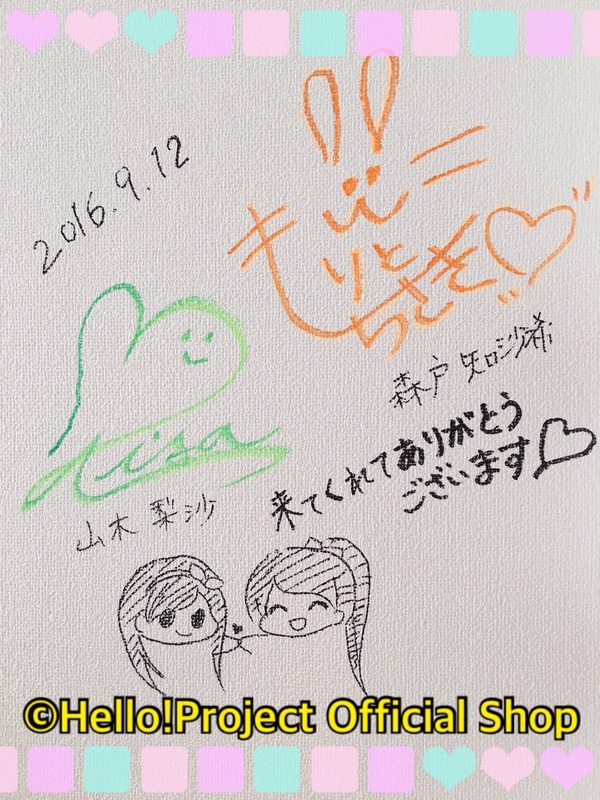 2016.9.12
もりと
ちさき
森戸 知沙希
Risa
山木 梨沙
来てくれてありがとう
ございます
©Hello!Project Official Shop